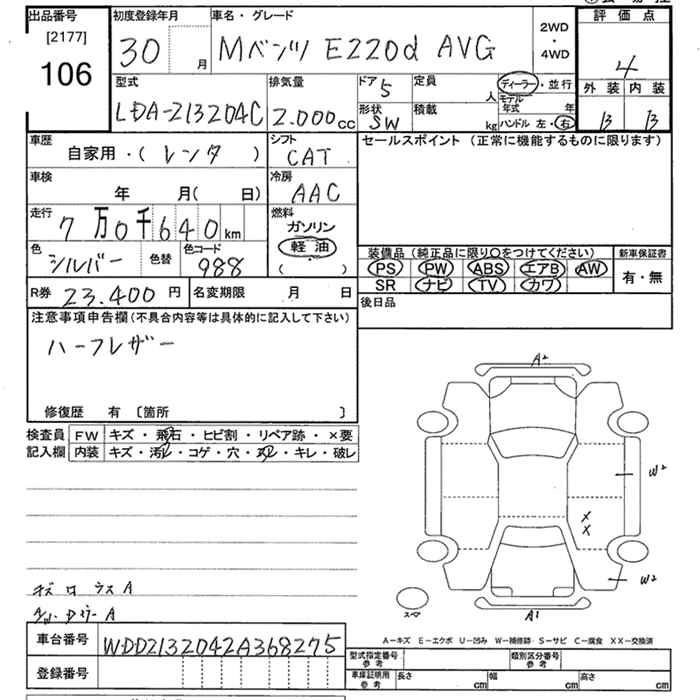 出品番号
[2177]
106
初度登録年月
30
月
車名・グレード
Mベンツ E220d AVG
2WD
・
4WD
評価点
4
外装 内装
B B
型式
LDA-213204C
排気量
2.000cc
ドア
5
形状
SW
定員
人
積載
kg
ディーラー・並行
モデル年式 年
ハンドル 左・右
車歴
自家用・( レンタ )
シフト
CAT
車検
年 月( 日)
冷房
AAC
走行
7万0千640km
燃料
ガソリン
軽油
( )
色
シルバー
色替
色コード
988
R券 23.400 円
名変期限 月 日
セールスポイント (正常に機能するものに限ります)
装備品 (純正品に限り○をつけてください)
PS PW ABS エアB AW
SR ナビ TV カワ
新車保証書
有・無
後日品
注意事項申告欄(不具合内容等は具体的に記入して下さい)
ハーフレザー
修復歴 有 〔箇所 〕
検査員
記入欄
FW キズ・飛石・ヒビ割・リペア跡・×要
内装 キズ・汚レ・コゲ・穴・スレ・キレ・破レ
A2
W2
X
X
W2
スペア
A1
A-キズ E-エクボ U-凹み W-補修跡 S-サビ C-腐食 XX-交換済
車台番号 WDD2132042A368275
登録番号
型式指定番号
参考
類別区分番号
参考
車庫証明用
参考
長さ cm
幅 cm
高さ cm